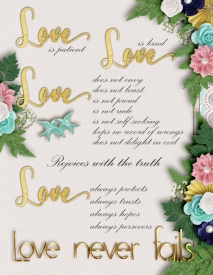 Love
is patient
Love
is kind
Love
does not envy
does not boast
is not proud
is not rude
is not self seeking
keps no record of wrongs
does not delight in evil
Rejoices with the truth
Love
always protects
always trusts
always hopes
always persevers
Love never fails